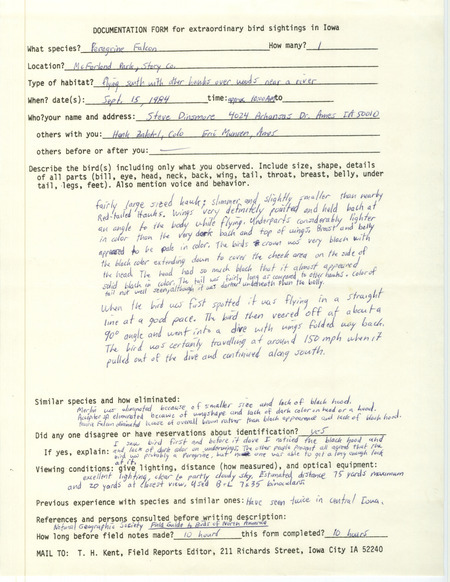 DOCUMENTATION FORM for extraordinary bird sightings in Iowa
What species? Peregrine Falcon How many? 1
Location? McFarland Park, Story Co.
Type of habitat? flying south with other hawks over woods near a river
When? date(s): Sept. 15, 1984 time: approx 10:00 AM to
Who?your name and address: Steve Dinsmore 4024 Arkansas Dr. Ames IA 50010
others with you: Hank Zaletel, Colo Eric Munson, Ames
others before or after you:
Describe the bird(s) including only what you observed. Include size, shape, details
of all parts (bill, eye, head, neck, back, wing, tail, throat, breast, belly, under
tail, legs, feet). Also mention voice and behavior.
fairly large sized hawk; slimmer and slightly smaller than nearby
Red-tailed Hawks. Wings very definitely pointed and held back at
an angle to the body while flying. Underparts considerably lighter
in color than the very dark back and top of wings. Breast and belly
appeared to be pale in color. The birds crown was very black with
the black color extending down to cover the cheek area on the side of
the head. The head had so much black that it almost appeared
solid black in color. The tail was fairly long as compared to other hawks. Color of
tail not well seen, although it was darker underneath than the belly.
When the bird was first spotted it was flying in a straight
line at a good pace. The bird then veered off at about a
90° angle and went into a dive with wings folded way back.
The bird was certainly travelling at around 150 mph when it
pulled out of the dive and continued along south.
Similar species and how eliminated:
Merlin was eliminated because of smaller size and lack of black hood.
Accipiter sp. eliminated because of wingshape and lack of dark color in head or a hood.
Prairie Falcon eliminated because of overall brown rather than black appearance and lack of black hood.
Did any one disagree or have reservations about identification? yes
If yes, explain: I saw bird first and before it dove I noticed the black hood and
and lack of dark color on underwings. The other people present all agreed that the
bird was probably a Peregrine, but no one was able to get a long enough look
at it.
Viewing conditions: give lighting, distance (how measured), and optical equipment:
excellent lighting, clear to partly cloudy sky. Estimated distance 75 yards maximum
and 20 yards at closest view. Used B+L 7x35 binoculars.
Previous experience with species and similar ones: Have seen twice in central Iowa.
References and persons consulted before writing description:
National Geographic Society Field Guide to Birds of North America
How long before field notes made? 10 hours this form completed? 10 hours
MAIL TO: T. H. Kent, Field Reports Editor, 211 Richards Street, Iowa City IA 52240